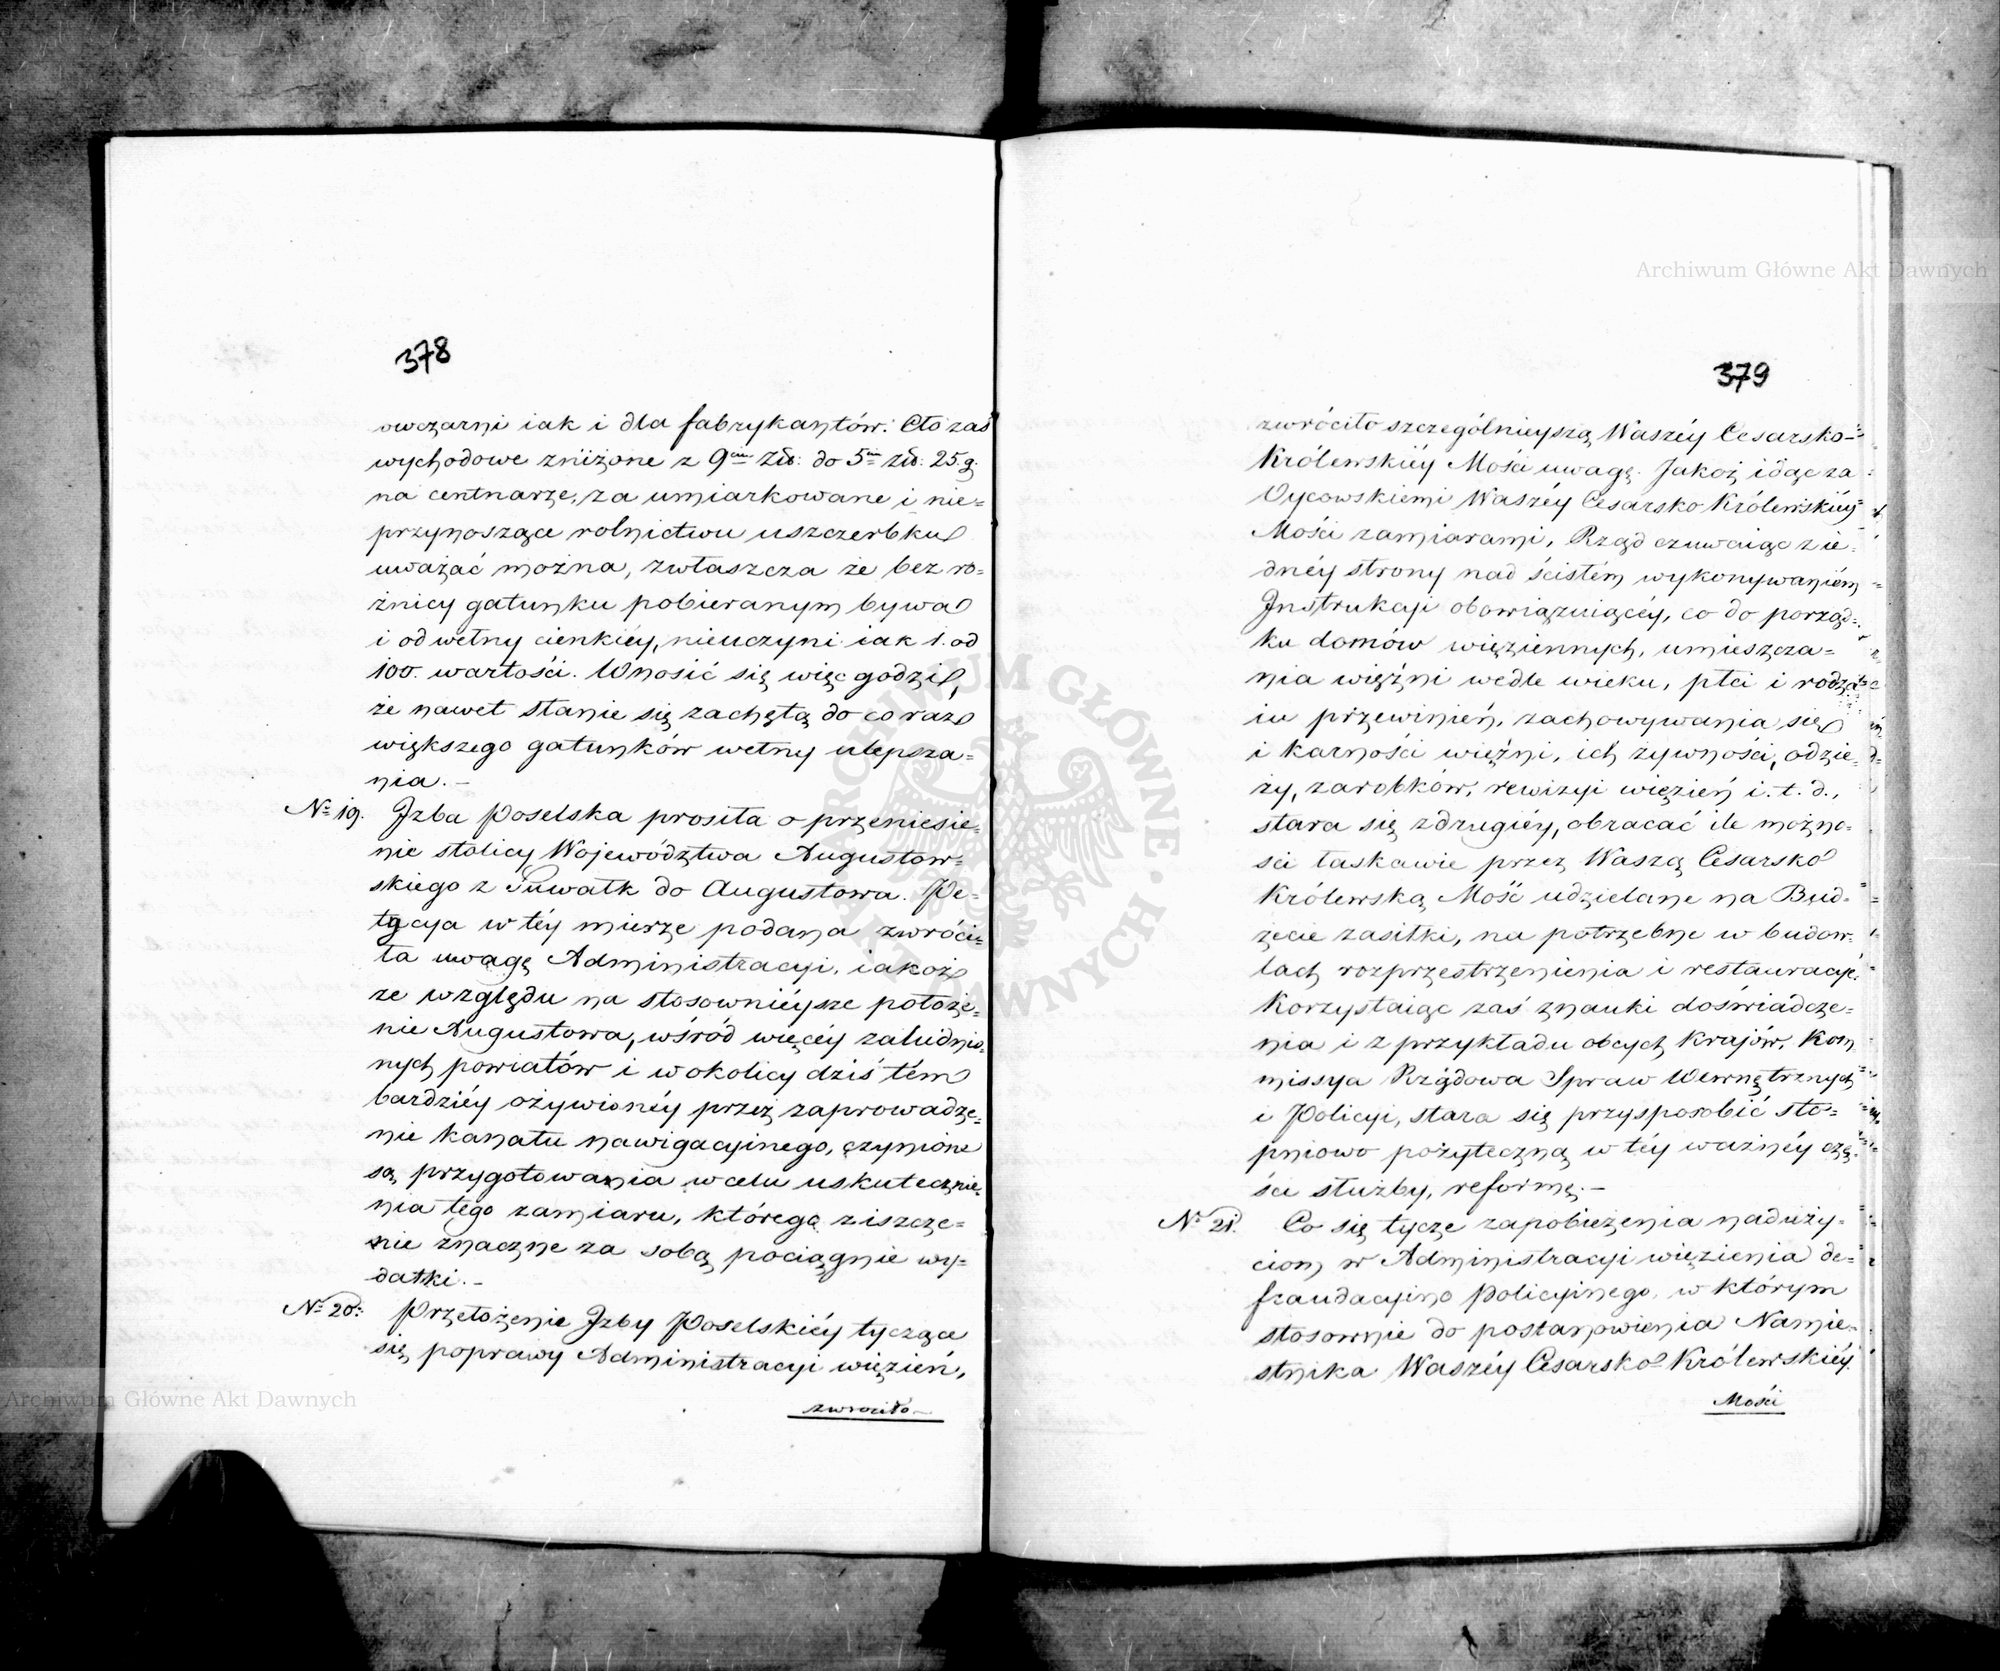 378
owczarni iak i dla fabrykantów. Cło zaś
wychodowe zniżone z 9ciu Złt: do 5iu złt: 25 g.
na centnarze, za umiarkowane i nie=
przynoszące rolnictwu uszczerbku
uważać można, zwłaszcza że bez ró=
żnicy gatunku pobieranym bywa
i od wełny cienkiéy, nieuczyni iak 1. od
100. wartości. Wnosić się więc godzi,
że nawet stanie się zachętą do co raz
większego gatunków wełny ulepsza=
nia. –
No 19. Jzba Poselska prosiła o przeniesie=
nie stolicy Województwa Augustow=
skiego z Suwałk do Augustowa. Pe=
tycya w téy mierze podana zwróci=
ła uwagę Administracyi, iakoż
ze względu na stosownieysze położe=
nie Augustowa, wśród więcéy zaludnio=
nych powiatów i w okolicy dziś tém
bardziéy ożywionéy przez zaprowadze=
nie kanału nawigacyinego, czynione
są przygotowania w celu uskutecznie=
nia tego zamiaru, którego ziszcze=
nie znaczne za sobą pociągnie wy=
datki. –
No 20: Przełożenie Jzby Poselskiéy tyczące
się poprawy Administracyi więzień,
zwróciło
379
zwróciło szczególnieyszą Waszéy Cesarsko=
Królewskiéy Mości uwagę. Jakoż idąc za
Oycowskiemi Waszéy Cesarsko Królewskiéy
Mości zamiarami, Rząd czuwaiąc z ie=
dnéy strony nad ścisłém wykonywaniem
Jnstrukcyi obowiązuiącéy, co do porząd=
ku domów więziennych, umieszcza=
nia więźni wedle wieku, płci i rodza=
iu przewinień, zachowywania się
i karności więźni, ich żywności, odzie=
ży, zarobków, rewizyi więzień i. t. d.,
stara się z drugiéy, obracać ile możno=
ści łaskawie przez Waszą Cesarsko
Królewską Mość udzielane na Bud=
żecie zasiłki, na potrzebne w budow=
lach rozprzestrzenienia i restauracye.
Korzystaiąc zaś z nauki doświadcze=
nia i z przykładu obcych krajów, Kom
missya Rządowa Spraw Wewnętrznych
i Policyi, stara się przysposobić sto=
pniowo pożyteczną w téy ważnéy czę=
ści służby, reformę. –
No 21. Co się tycze zapobieżenia naduży=
ciom w Administracyi więzienia de=
fraudacyino policyinego, w którym
stosownie do postanowienia Namie=
stnika Waszéy Cesarsko Królewskiéy
Mości
Archiwum Główne Akt Dawnych
Archiwum Główne Akt Dawnych
ARCHIWUM GŁÓWNE AKT DAWNYCH